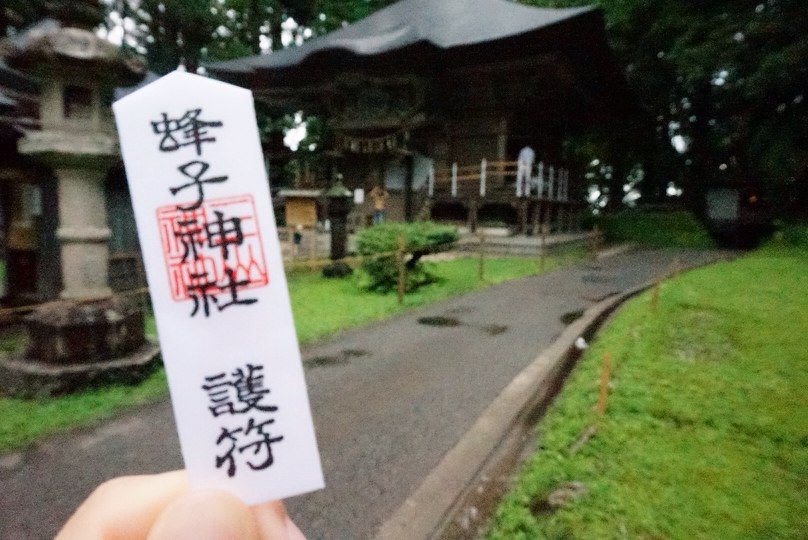 蜂子神社
護符